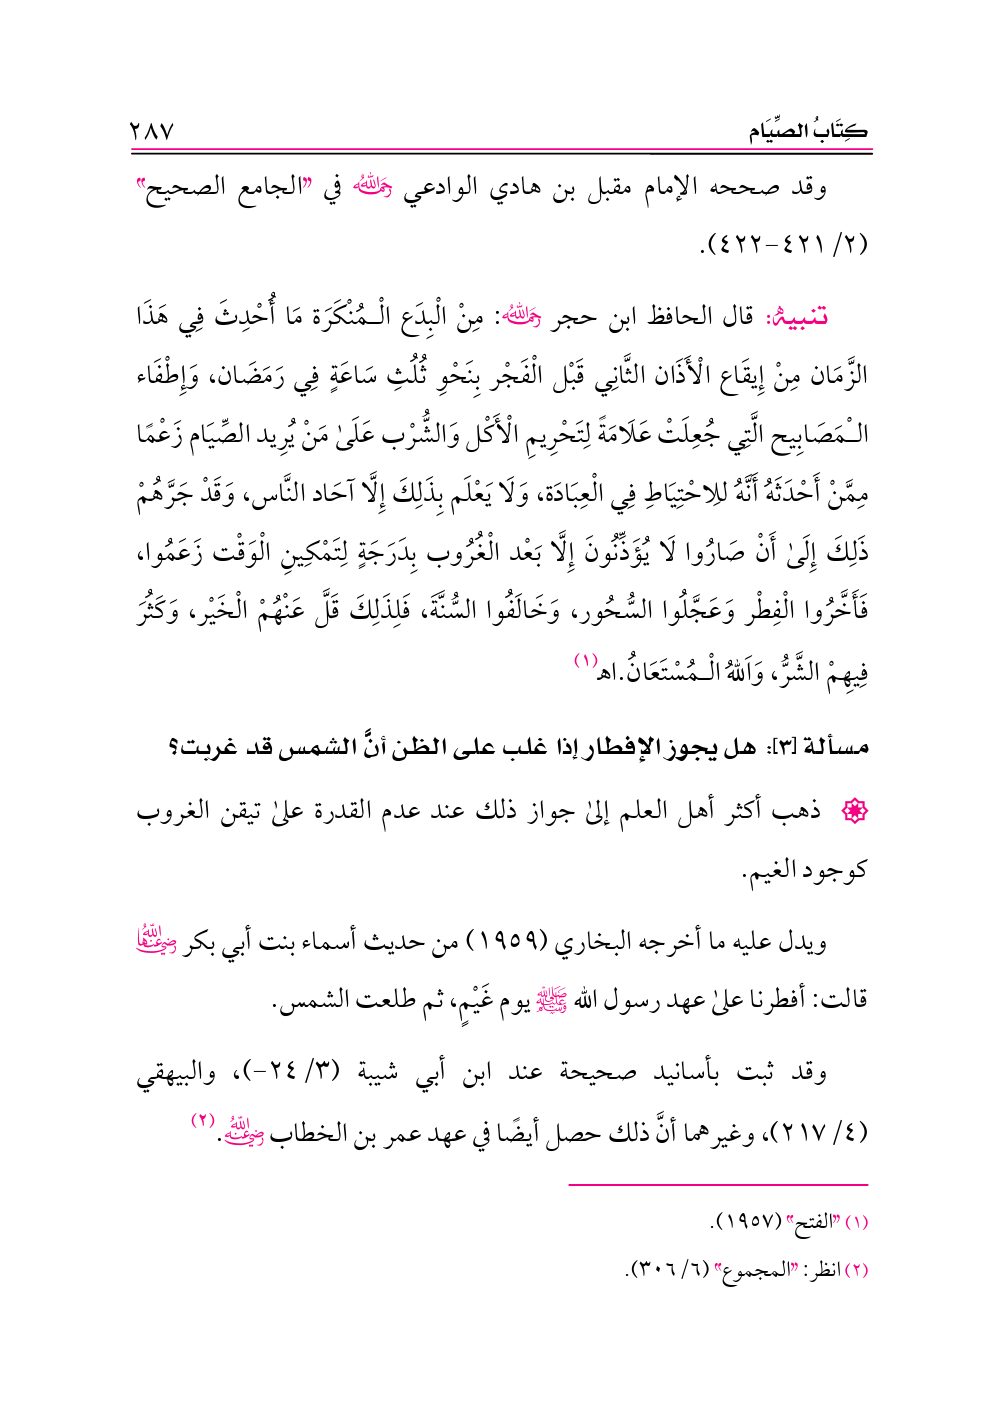 كِتَابُ الصِّيَام ٢٨٧
وقد صححه الإمام مقبل بن هادي الوادعي رحمه الله في "الجامع الصحيح"
(٢/ ٤٢١-٤٢٢).
تنبيهٌ: قال الحافظ ابن حجر رحمه الله: مِنْ الْبِدَع الْـمُنْكَرَة مَا أُحْدِثَ فِي هَذَا
الزَّمَان مِنْ إِيقَاع الْأَذَان الثَّانِي قَبْل الْفَجْر بِنَحْوِ ثُلُثِ سَاعَةٍ فِي رَمَضَان، وَإِطْفَاء
الـْمَصَابِيح الَّتِي جُعِلَتْ عَلَامَةً لِتَحْرِيمِ الْأَكْل وَالشُّرْب عَلَىٰ مَنْ يُرِيد الصِّيَام زَعْمًا
مِمَّنْ أَحْدَثَهُ أَنَّهُ لِلِاحْتِيَاطِ فِي الْعِبَادَة، وَلَا يَعْلَم بِذَلِكَ إِلَّا آحَاد النَّاس، وَقَدْ جَرَّهُمْ
ذَلِكَ إِلَىٰ أَنْ صَارُوا لَا يُؤَذِّنُونَ إِلَّا بَعْد الْغُرُوب بِدَرَجَةٍ لِتَمْكِينِ الْوَقْت زَعَمُوا،
فَأَخَّرُوا الْفِطْر وَعَجَّلُوا السُّحُور، وَخَالَفُوا السُّنَّةَ، فَلِذَلِكَ قَلَّ عَنْهُمْ الْخَيْر، وَكَثُرَ
فِيهِمْ الشَّرُّ، وَاَللهُ الْـمُسْتَعَانُ.اهـ(١)
مسألة [٣]: هل يجوز الإفطار إذا غلب على الظن أنَّ الشمس قد غربت؟
ذهب أكثر أهل العلم إلىٰ جواز ذلك عند عدم القدرة علىٰ تيقن الغروب
كوجود الغيم.
ويدل عليه ما أخرجه البخاري (١٩٥٩) من حديث أسماء بنت أبي بكر رضي الله عنها
قالت: أفطرنا علىٰ عهد رسول الله ﷺ يوم غَيْمٍ، ثم طلعت الشمس.
وقد ثبت بأسانيد صحيحة عند ابن أبي شيبة (٣/ ٢٤-)، والبيهقي
(٤/ ٢١٧)، وغيرهما أنَّ ذلك حصل أيضًا في عهد عمر بن الخطاب رضي الله عنه.(٢)
(١) "الفتح" (١٩٥٧).
(٢) انظر: "المجموع" (٦/ ٣٠٦).